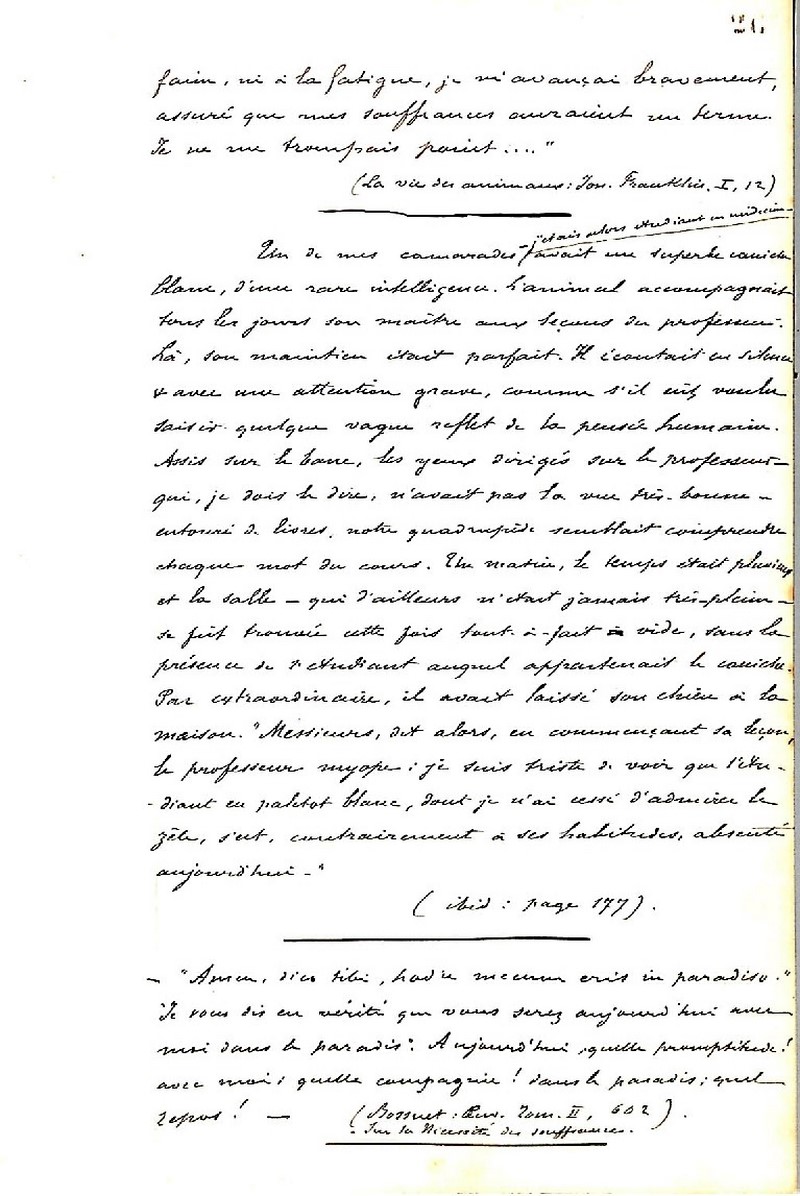 21.
faim, ni à la fatigue, je m'avançai bravement,
assuré que mes souffrances auraient un terme.
Je ne me trompais point...."
(La vie des animaux: Jon. Franklin. I, 12)
- j'étais alors étudiant en médecine -
Un de mes camarades avait un superbe caniche
blanc, d'une rare intelligence. L'animal accompagnait
tous les jours son maître aux leçons du professeur.
Là, son maintien était parfait. Il écoutait en silence
& avec une attention grave, comme s'il eût voulu
saisir quelque vague reflet de la pensée humaine.
Assis sur le banc, les yeux dirigés sur le professeur -
qui, je dois le dire, n'avait pas la vue très-bonne -
entouré de livres, notre quadrupède semblait comprendre
chaque mot du cours. Un matin, le temps était pluvieux
et la salle - qui d'ailleurs n'était jamais très-pleine -
se fût trouvée cette fois tout-à-fait vide, sans la
présence de l'étudiant auquel appartenait le caniche.
Par extraordinaire, il avait laissé son chien à la
maison. "Messieurs, dit alors, en commençant sa leçon,
le professeur myope: je suis triste de voir que l'étu-
-diant en paletot blanc, dont je n'ai cessé d'admirer le
zèle, s'est, contrairement à ses habitudes, absenté
aujourd'hui -"
( ibid: page 177).
- "Amen, dico tibi, hodie mecum eris in paradiso."
"Je vous dis en vérité que vous serez aujourd'hui avec
moi dans le paradis". Aujourd'hui, quelle promptitude!
avec moi; quelle compagnie! dans le paradis; quel
repos! - (Bossuet: Œuv. Tom. II, 602).
- Sur la Nécessité des souffrances.